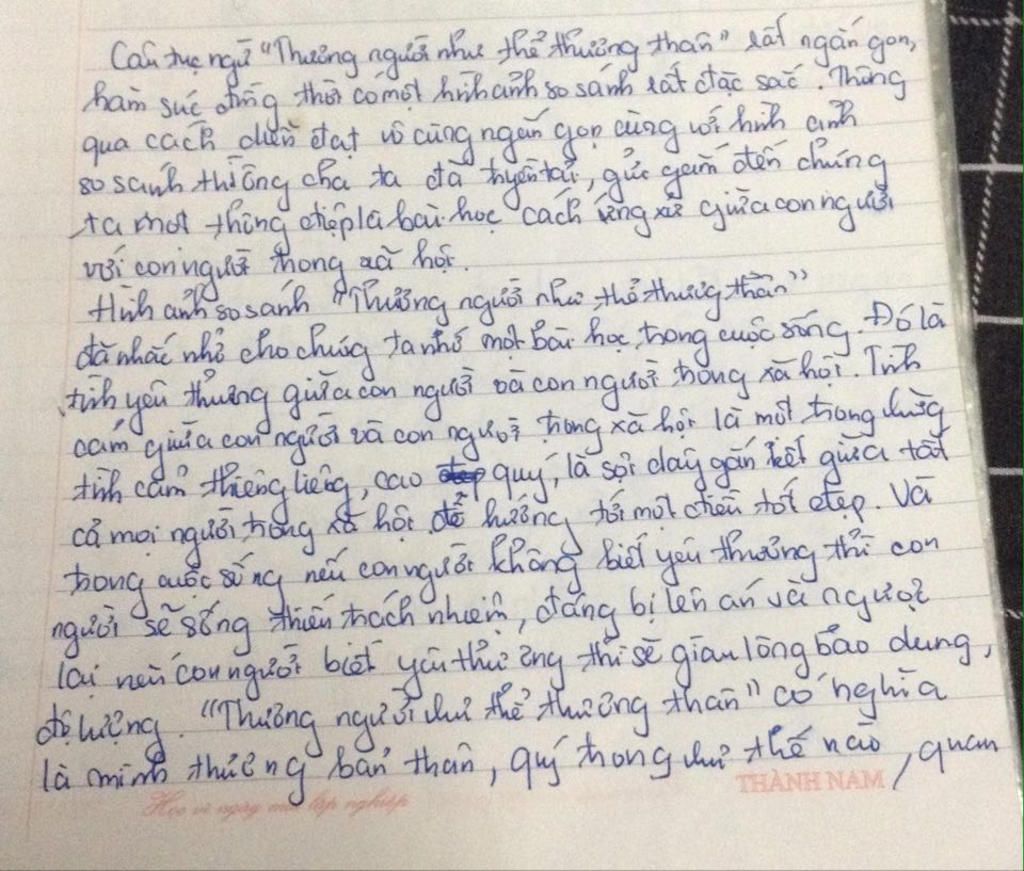 Câu tục ngữ "Thương người như thể thương thân" rất ngắn gọn,
hàm súc đồng thời có một hình ảnh so sánh rất đặc sắc. Thông
qua cách diễn đạt vô cùng ngắn gọn cùng với hình ảnh
so sánh thì ông cha ta đã truyền tải, gửi gắm đến chúng
ta một thông điệp là bài học cách ứng xử giữa con người
với con người trong xã hội.
Hình ảnh so sánh "Thương người như thể thương thân"
đã nhắc nhở cho chúng ta nhớ một bài học trong cuộc sống. Đó là
tình yêu thương giữa con người và con người trong xã hội. Tình
cảm giữa con người và con người trong xã hội là một trong những
tình cảm thiêng liêng, cao quý, là sợi dây gắn kết giữa tất
cả mọi người trong xã hội để hướng tới một điều tốt đẹp. Và
trong cuộc sống nếu con người không biết yêu thương thì con
người sẽ sống thiếu trách nhiệm, đáng bị lên án và ngược
lại nếu con người biết yêu thương thì sẽ giàu lòng bao dung,
độ lượng. "Thương người như thể thương thân" có nghĩa
là mình thương bản thân, quý trọng như thế nào, quan
Học vì ngày mai lập nghiệp THÀNH NAM